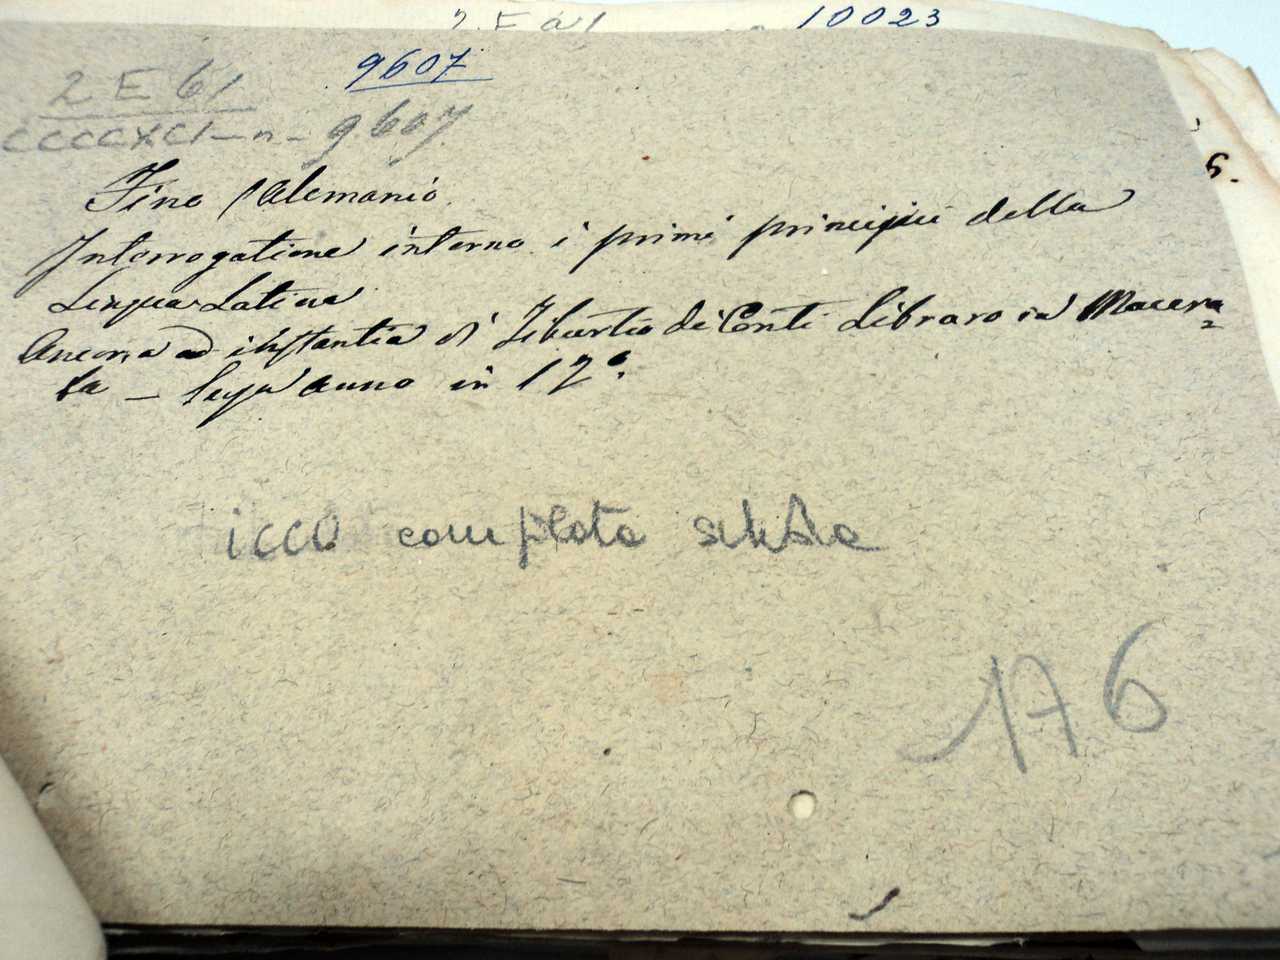 2 E 61 10023
9607
2 E 61
CCCCXCI-n- 9607
Fino Alemanio
Interrogatione interno i primi principii della
Lingua Latina
Ancona ad instantia di Tiburtio de Conti Libraro in Macera=
ta _ senz'anno in 12°.
ICCU completa scheda
176